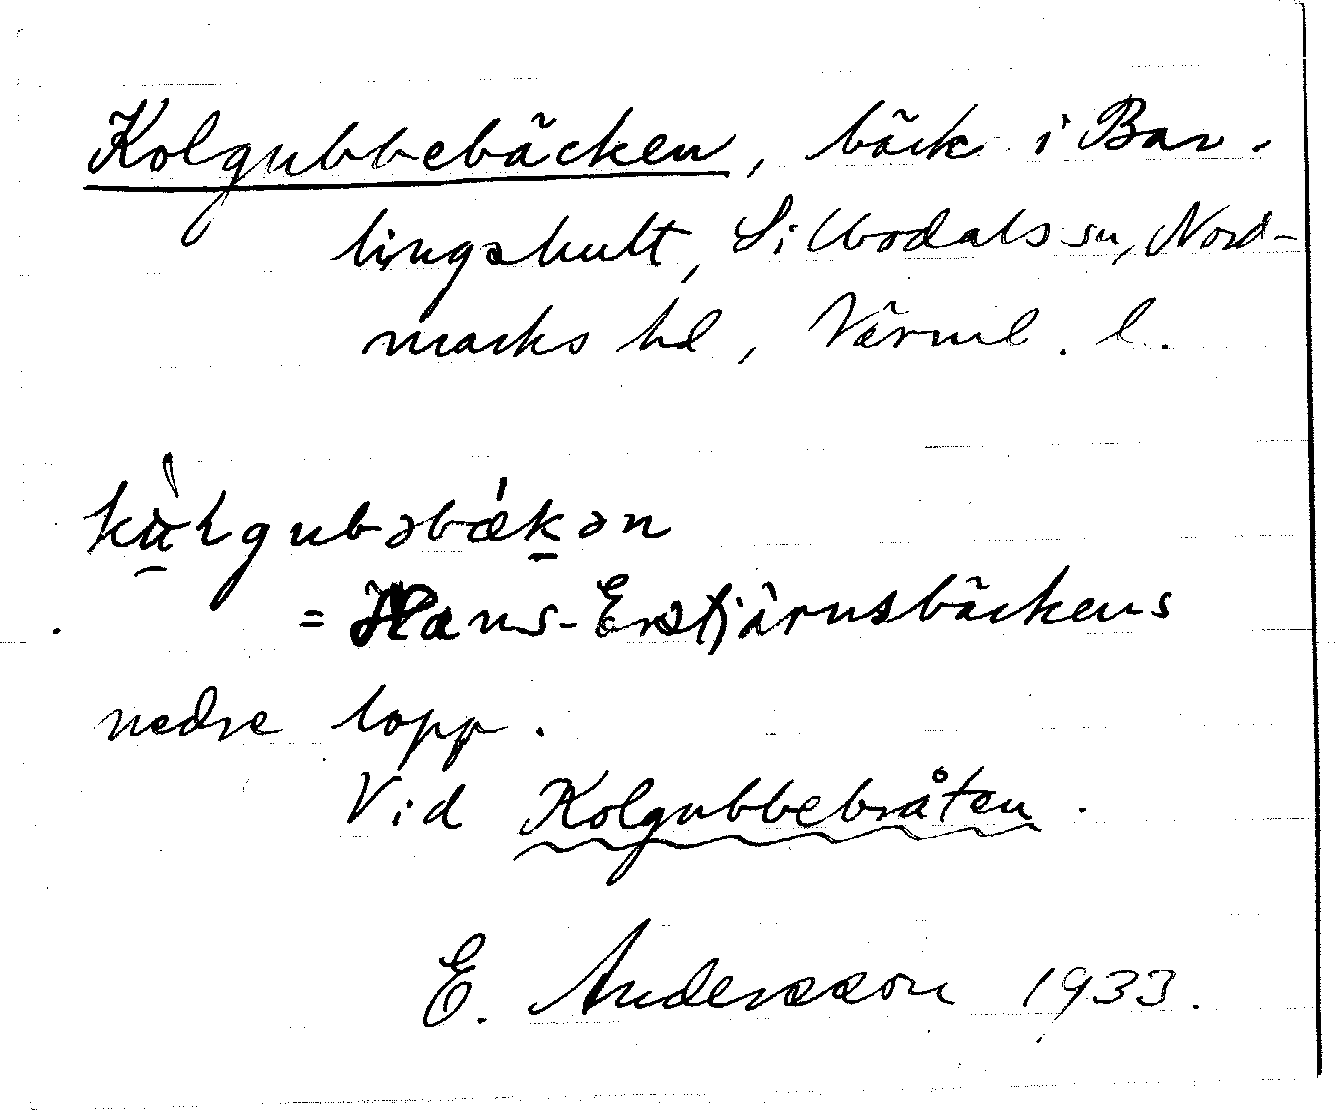 Kolgubbebäcken, bäck i Bar-
lingshult, Silbodals sn, Nord-
marks hd, Värml. l.
kὰlgubəbǽkən
= Hans-Erstjärnsbäckens
nedre lopp.
Vid Kolgubbebråten.
E. Andersson 1933.